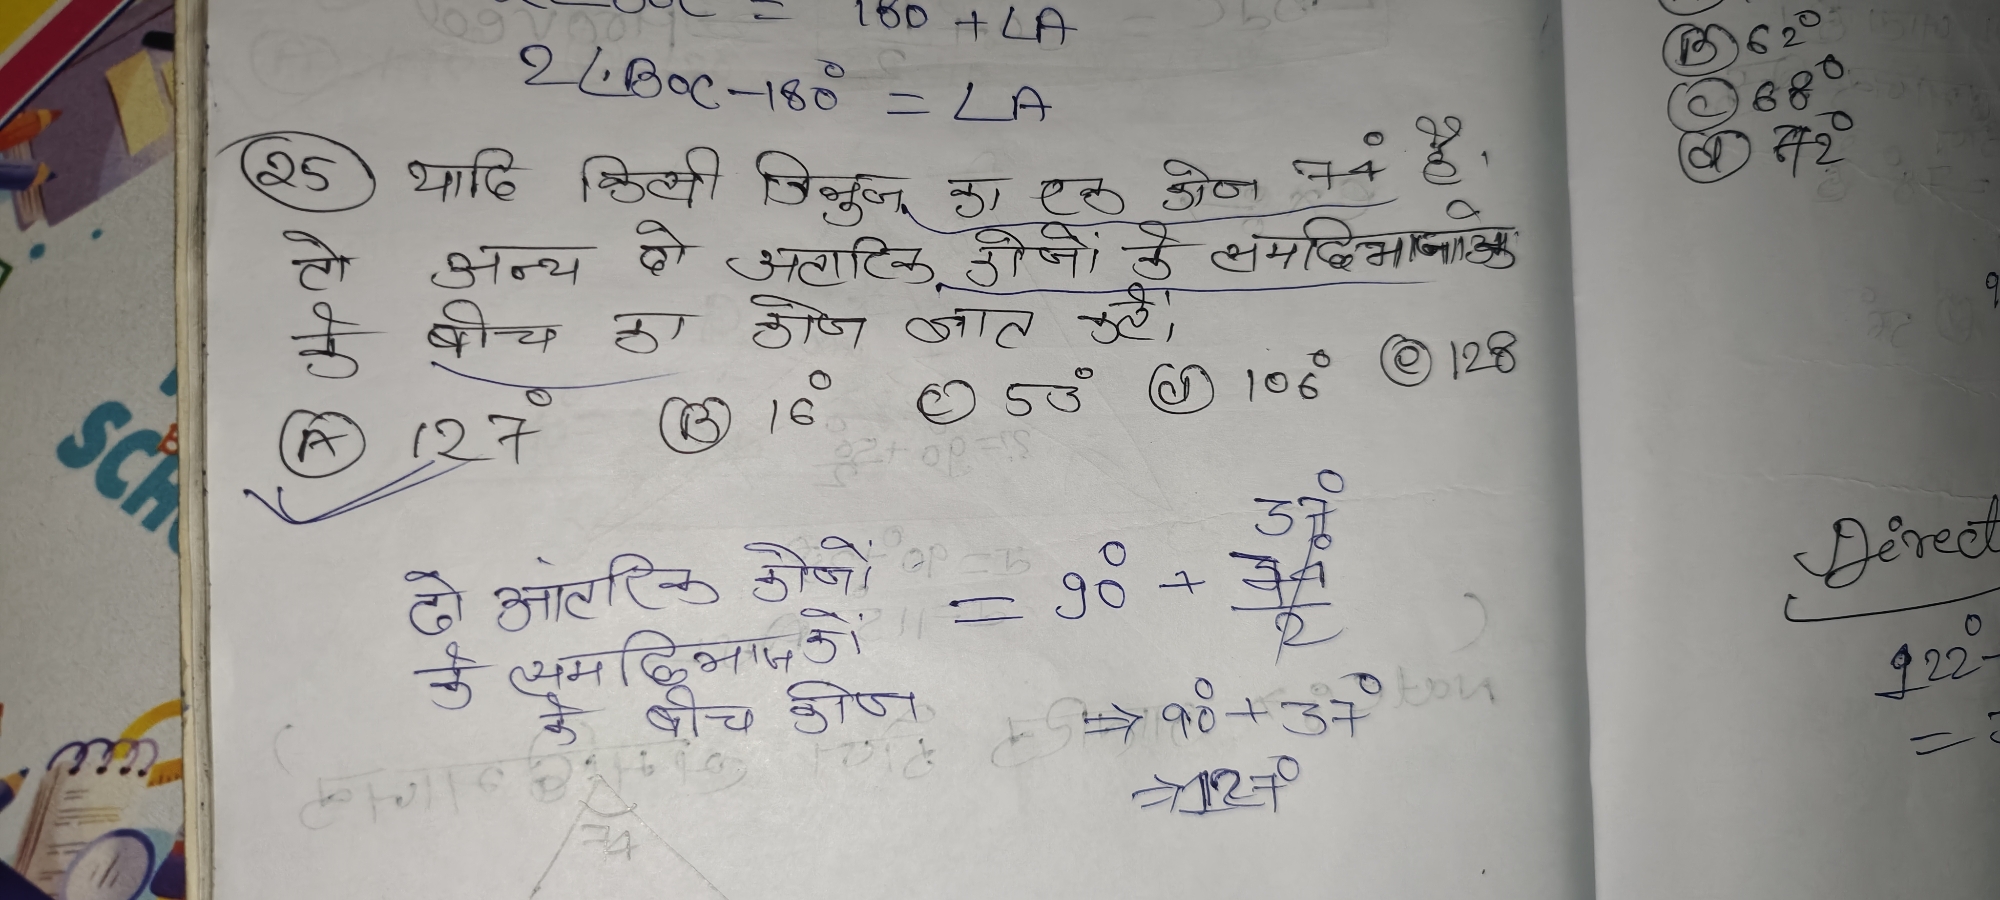 = 180 + ∠A
2∠BOC - 180° = ∠A
(25) यादि किसी त्रिभुज का एक कोण 74° है।
तो अन्य दो अतारिक कोणों के समद्विभाजाको
के बीच का कोण ज्ञात करें।
(A) 127° (B) 16° (C) 53° (d) 106° (e) 128
दो आंतरिक कोणों
के समद्विभाजकों
के बीच कोण
= 90° + 74°/2
37°
⇒ 90° + 37°
⇒ 127°
(B) 62°
(C) 68°
(d) 72°
Direct
122° -
=
SCH
74